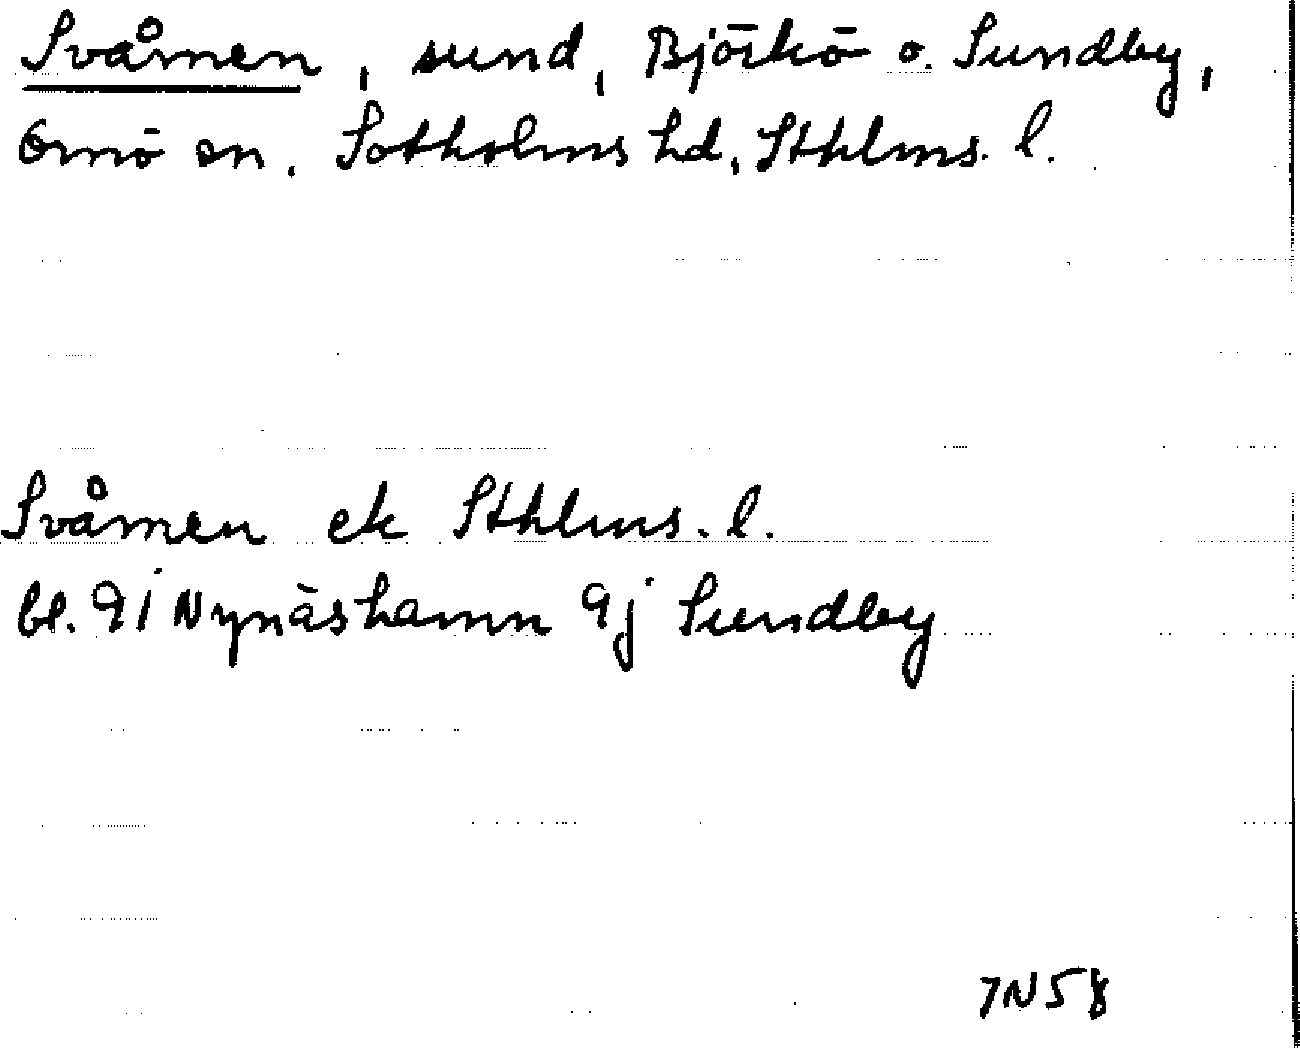 Svåmen, sund, Björkö o. Sundby,
Ornö sn. Sotholms hd, Sthlms. l.
Svåmen ek Sthlms. l.
bl. 9i Nynäshamn 9j Sundby